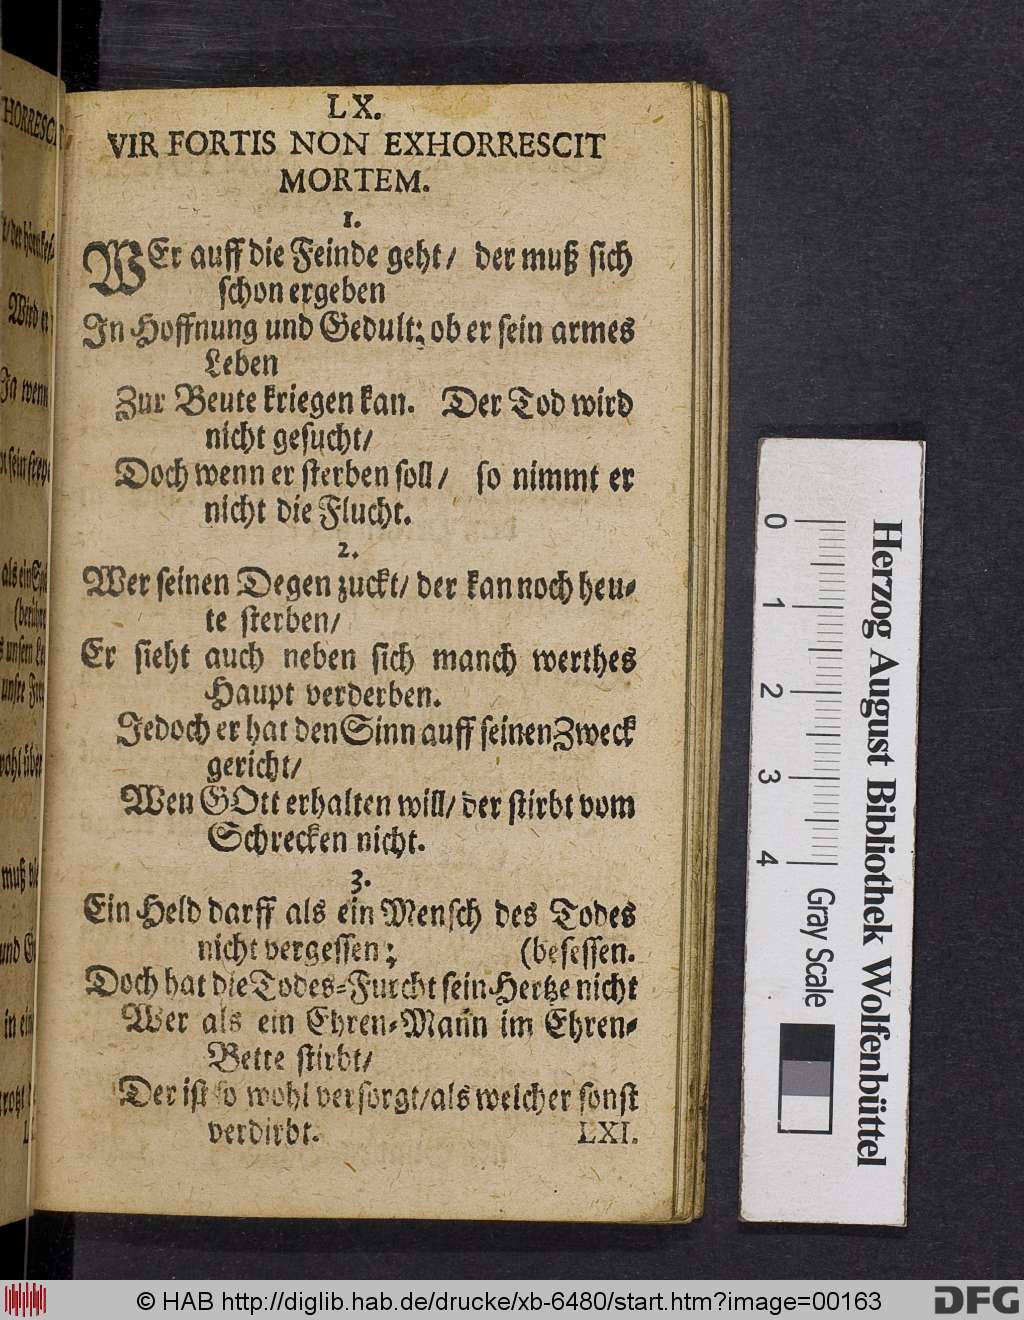 LX.
VIR FORTIS NON EXHORRESCIT
MORTEM.
1.
WEr auff die Feinde geht/ der muß sich
schon ergeben
In Hoffnung und Gedult; ob er sein armes
Leben
Zur Beute kriegen kan. Der Tod wird
nicht gesucht/
Doch wenn er sterben soll/ so nimmt er
nicht die Flucht.
2.
Wer seinen Degen zuckt/ der kan noch heu-
te sterben/
Er sieht auch neben sich manch werthes
Haupt verderben.
Jedoch er hat den Sinn auff seinen Zweck
gericht/
Wen GOtt erhalten will/ der stirbt vom
Schrecken nicht.
3.
Ein Held darff als ein Mensch des Todes
nicht vergessen; (besessen.
Doch hat die Todes-Furcht sein Hertze nicht
Wer als ein Ehren-Mann im Ehren-
Bette stirbt/
Der ist so wohl versorgt/als welcher sonst
verdirbt. LXI.
HORRESC
Wird
Ja wenn
als ein
muß
und
in ein
0 1 2 3 4
Gray Scale
Herzog August Bibliothek Wolfenbüttel
© HAB http://diglib.hab.de/drucke/xb-6480/start.htm?image=00163
DFG